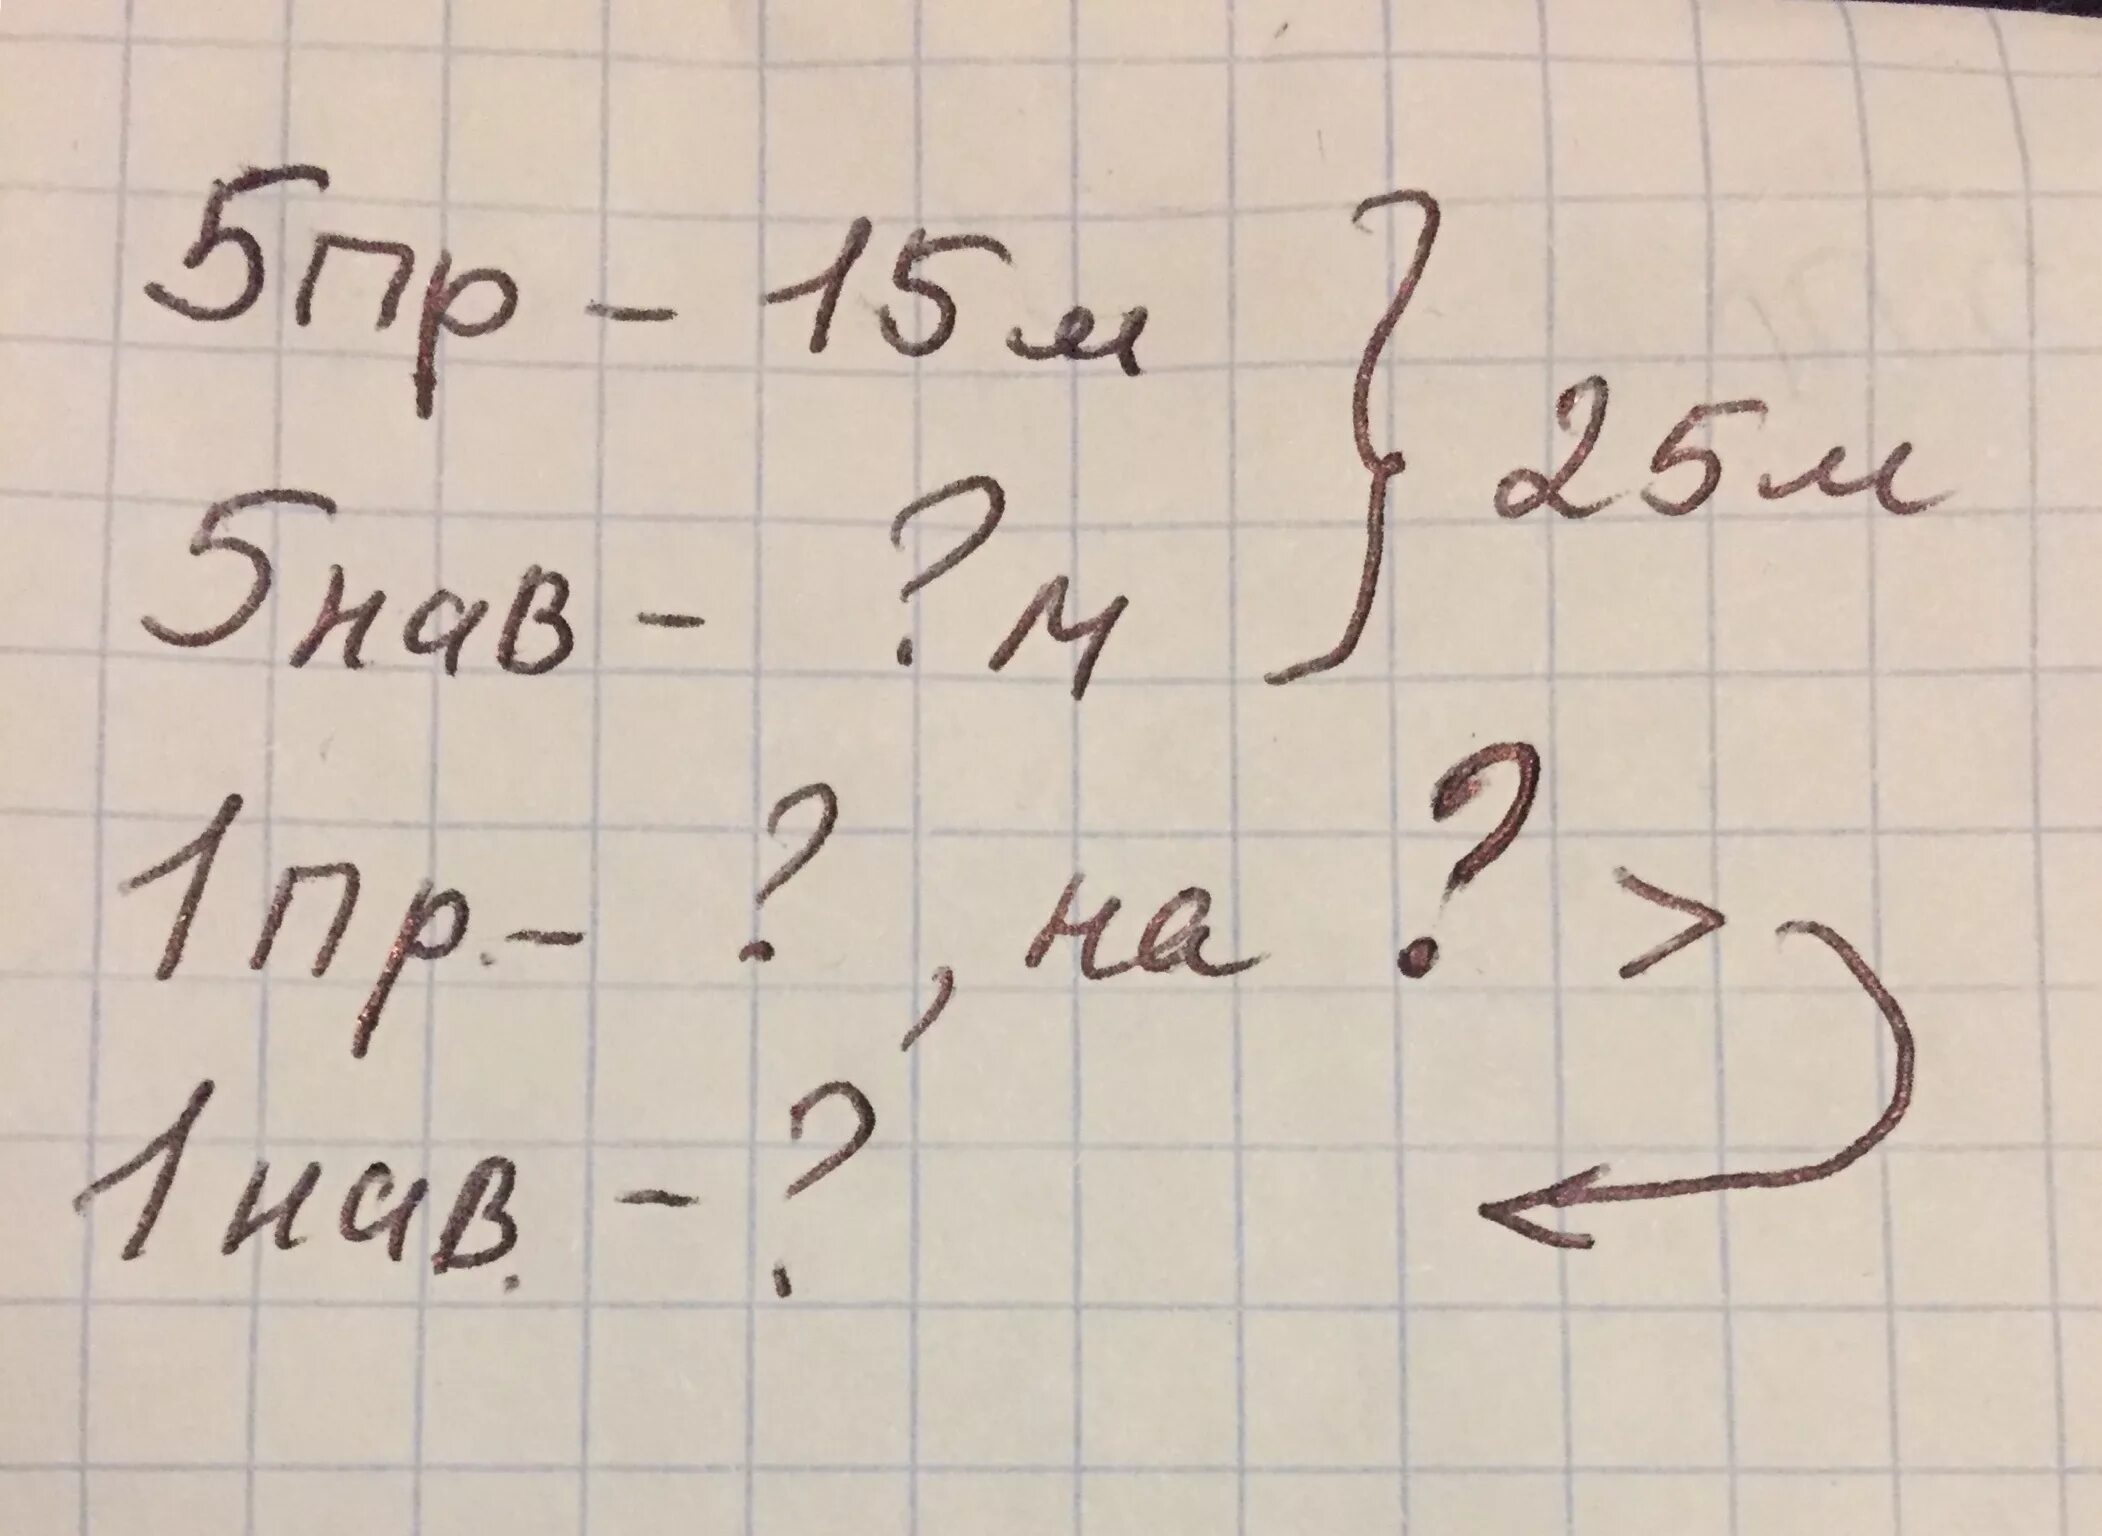 5пр - 15м } 25м
5нав - ?м
1пр. - ?, на ? >
1нав. - ?